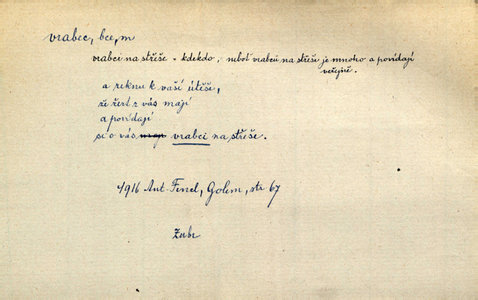 vrabec, bce, m
vrabci na střeše = kdekdo, neboť vrabců na střeše je mnoho a povídají
veřejně.
a řeknu k vaší útěše,
že žert z vás mají
a povídají
si o vás vrabci na střeše.
1916 Ant. Fencl, Golem, str. 67
Zubr